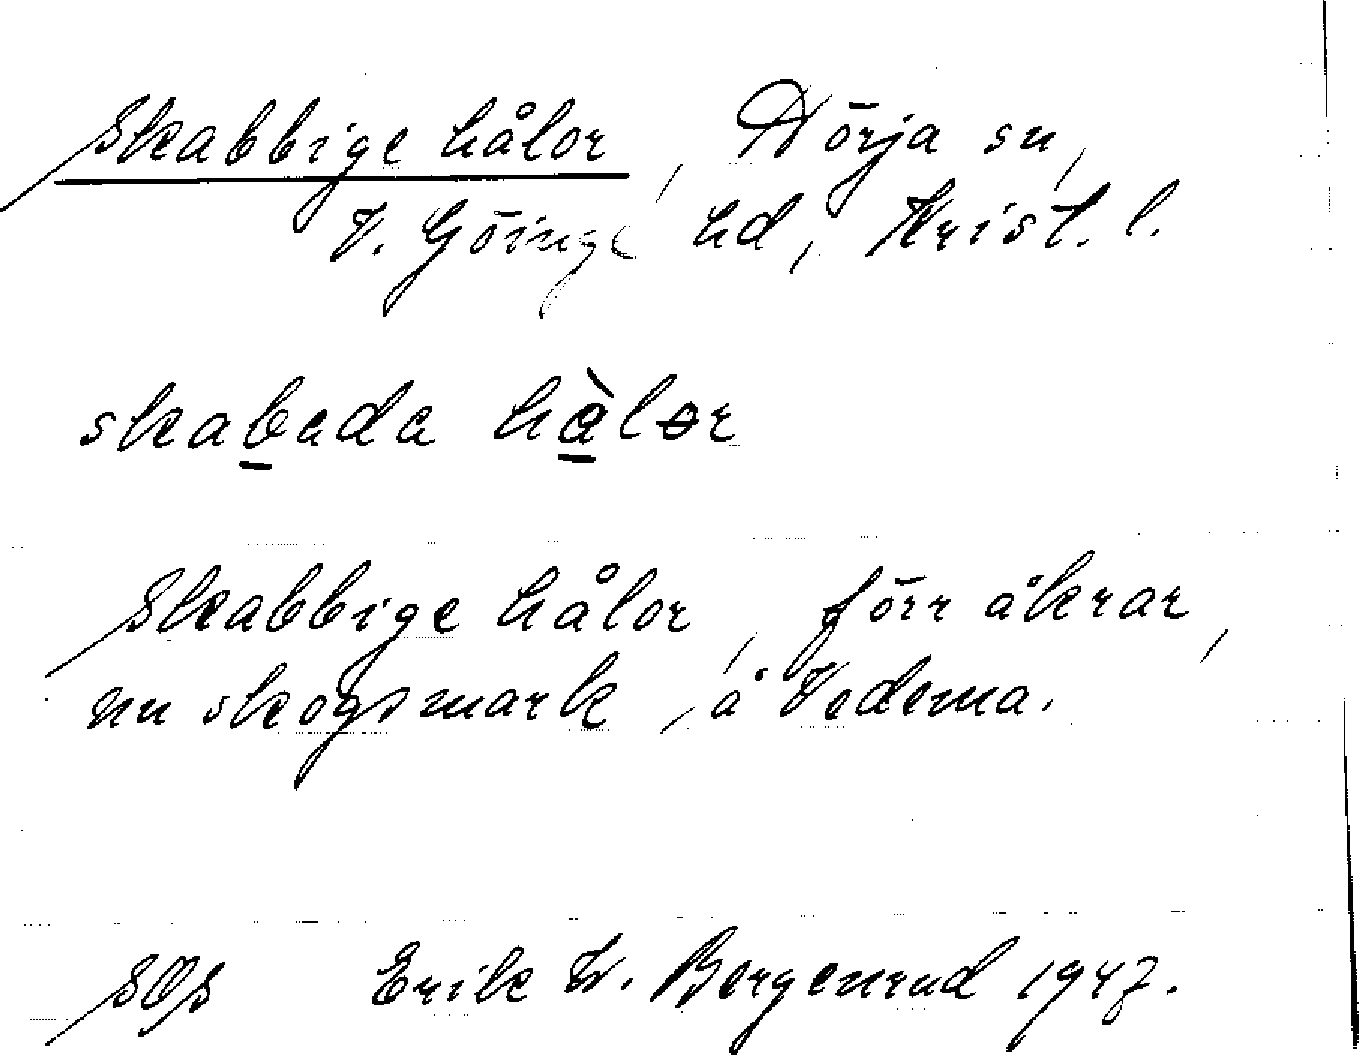 Skabbige hålor, Nörja sn,
V. Göinge hd, Krist. l.
skabada hàlor
Skabbige hålor, förr åkrar,
nu skogsmark, å Vedema.
SOS Erik W. Bergenrud 1947.